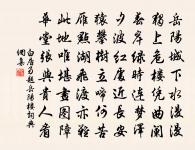 岳陽城下水漫漫
獨上危樓凭曲闌
春岸綠時連夢澤
夕波紅處近長安
猿攀樹立啼何苦
雁點湖飛渡亦難
此地唯堪畫圖障
華堂張與貴人看
白居易題岳陽樓詞典
網集